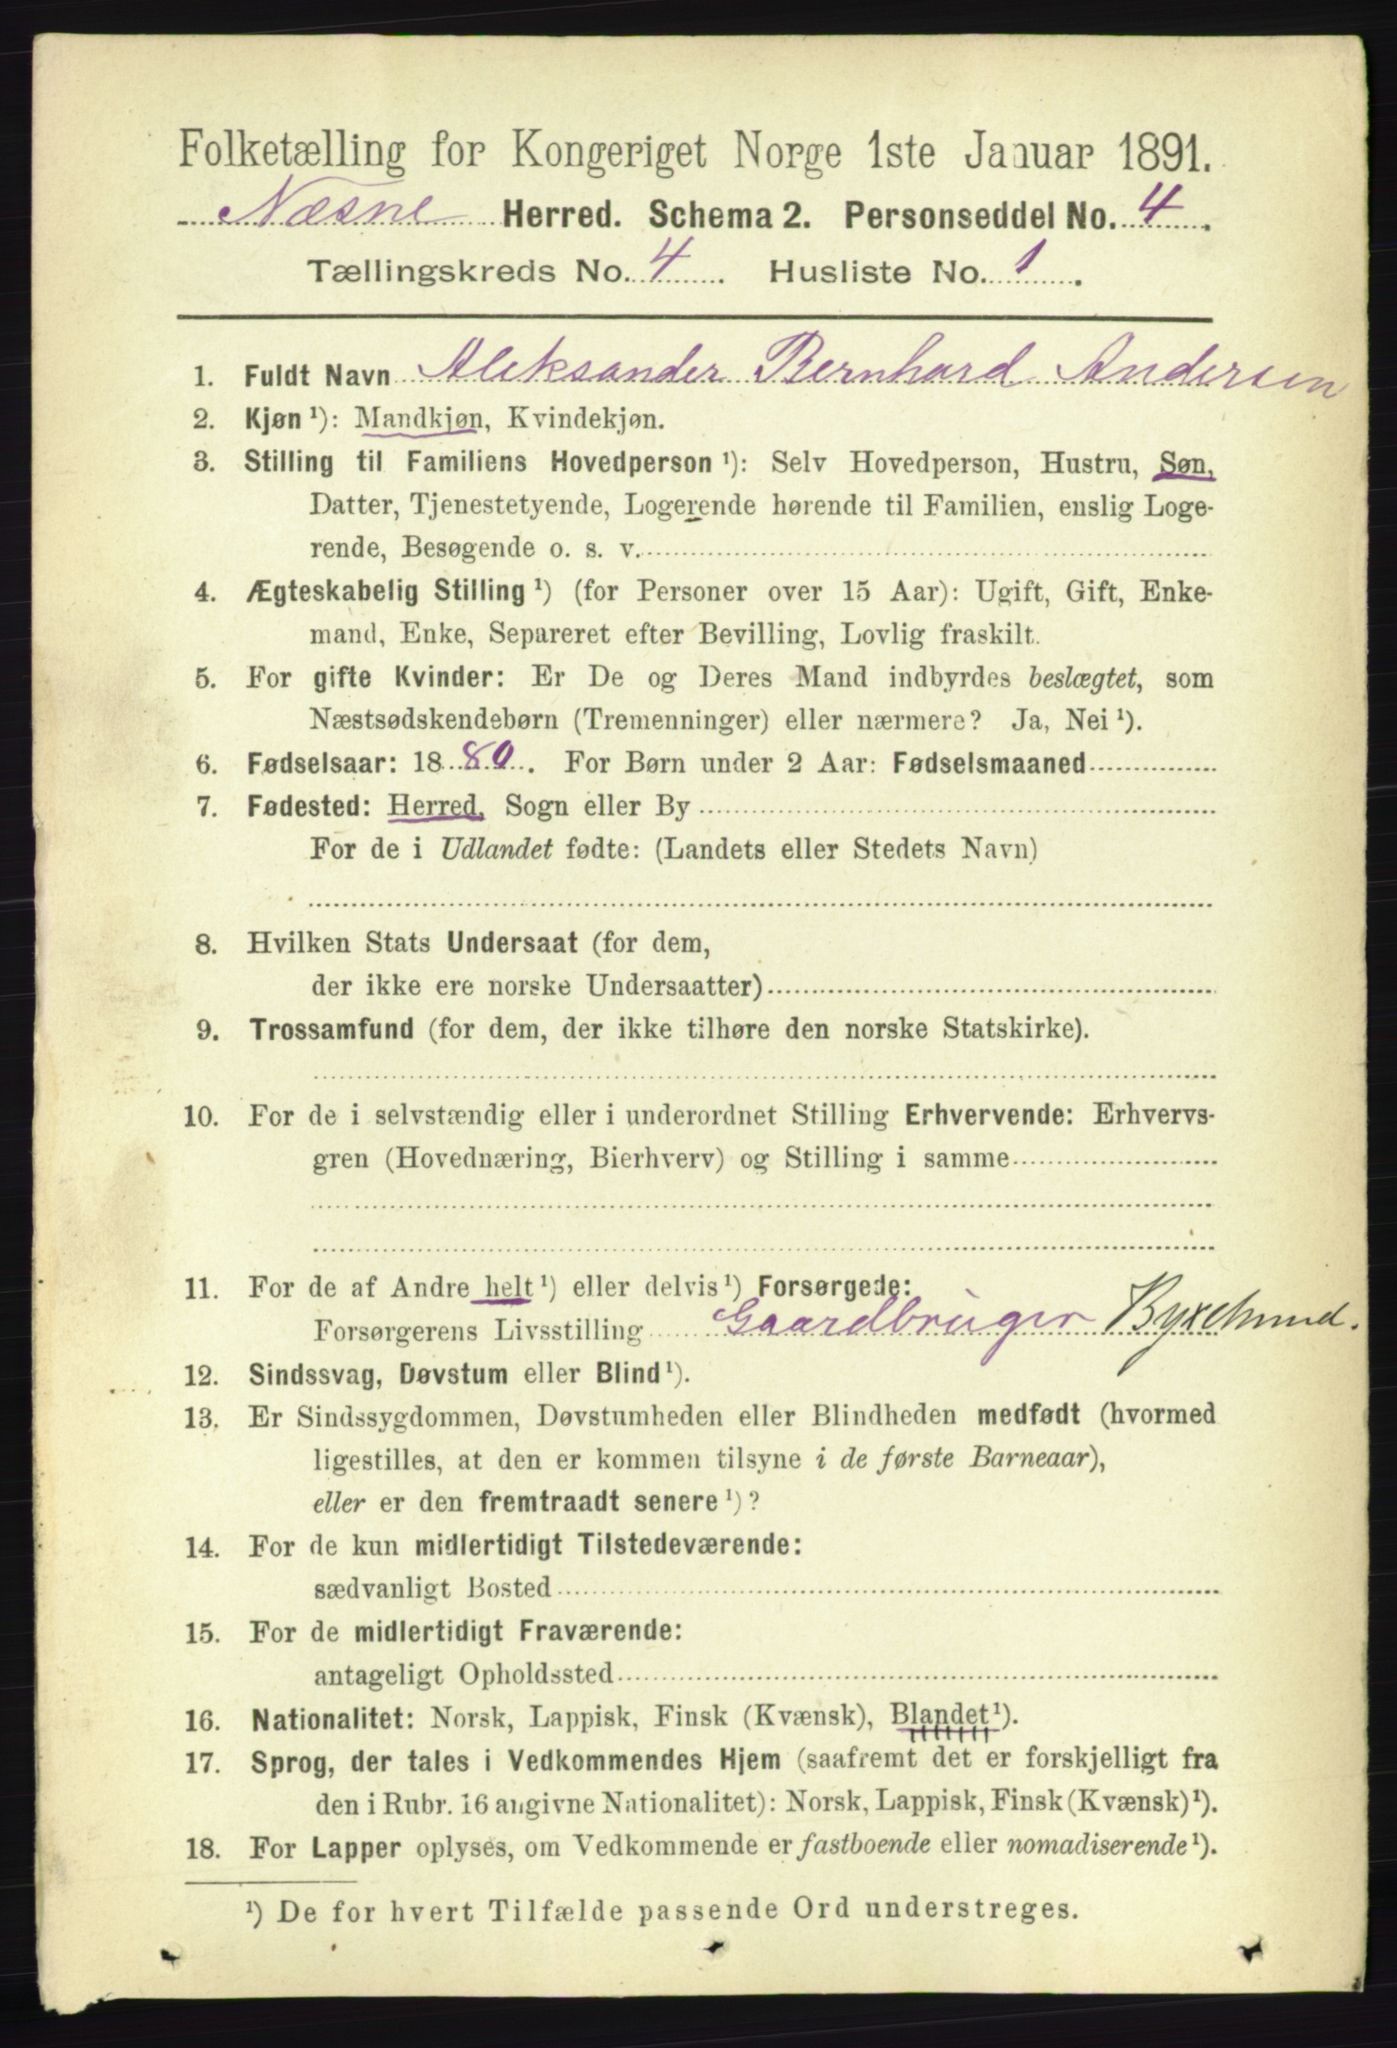 Folketælling for Kongeriget Norge 1ste Januar 1891.
Næsne Herred. Schema 2. Personseddel No. 4.
Tællingskreds No. 4. Husliste No. 1.
1. Fuldt Navn Aleksander Bernhard Andersen
2. Kjøn ¹): Mandkjøn, Kvindekjøn.
3. Stilling til Familiens Hovedperson ¹): Selv Hovedperson, Hustru, Søn,
Datter, Tjenestetyende, Logerende hørende til Familien, enslig Loge-
rende, Besøgende o. s. v.
4. Ægteskabelig Stilling ¹) (for Personer over 15 Aar): Ugift, Gift, Enke-
mand, Enke, Separeret efter Bevilling, Lovlig fraskilt.
5. For gifte Kvinder: Er De og Deres Mand indbyrdes beslægtet, som
Næstsødskendebørn (Tremenninger) eller nærmere? Ja, Nei ¹).
6. Fødselsaar: 1880. For Børn under 2 Aar: Fødselsmaaned
7. Fødested: Herred, Sogn eller By
For de i Udlandet fødte: (Landets eller Stedets Navn)
8. Hvilken Stats Undersaat (for dem,
der ikke ere norske Undersaatter)
9. Trossamfund (for dem, der ikke tilhøre den norske Statskirke).
10. For de i selvstændig eller i underordnet Stilling Erhvervende: Erhvervs-
gren (Hovednæring, Bierhverv) og Stilling i samme
11. For de af Andre helt ¹) eller delvis ¹) Forsørgede:
Forsørgerens Livsstilling Gaardbruger
12. Sindssvag, Døvstum eller Blind ¹).
13. Er Sindssygdommen, Døvstumheden eller Blindheden medfødt (hvormed
ligestilles, at den er kommen tilsyne i de første Barneaar),
eller er den fremtraadt senere ¹)?
14. For de kun midlertidigt Tilstedeværende:
sædvanligt Bosted
15. For de midlertidigt Fraværende:
antageligt Opholdssted
16. Nationalitet: Norsk, Lappisk, Finsk (Kvænsk), Blandet ¹).
17. Sprog, der tales i Vedkommendes Hjem (saafremt det er forskjelligt fra
den i Rubr. 16 angivne Nationalitet): Norsk, Lappisk, Finsk (Kvænsk) ¹).
18. For Lapper oplyses, om Vedkommende er fastboende eller nomadiserende ¹).
¹) De for hvert Tilfælde passende Ord understreges.